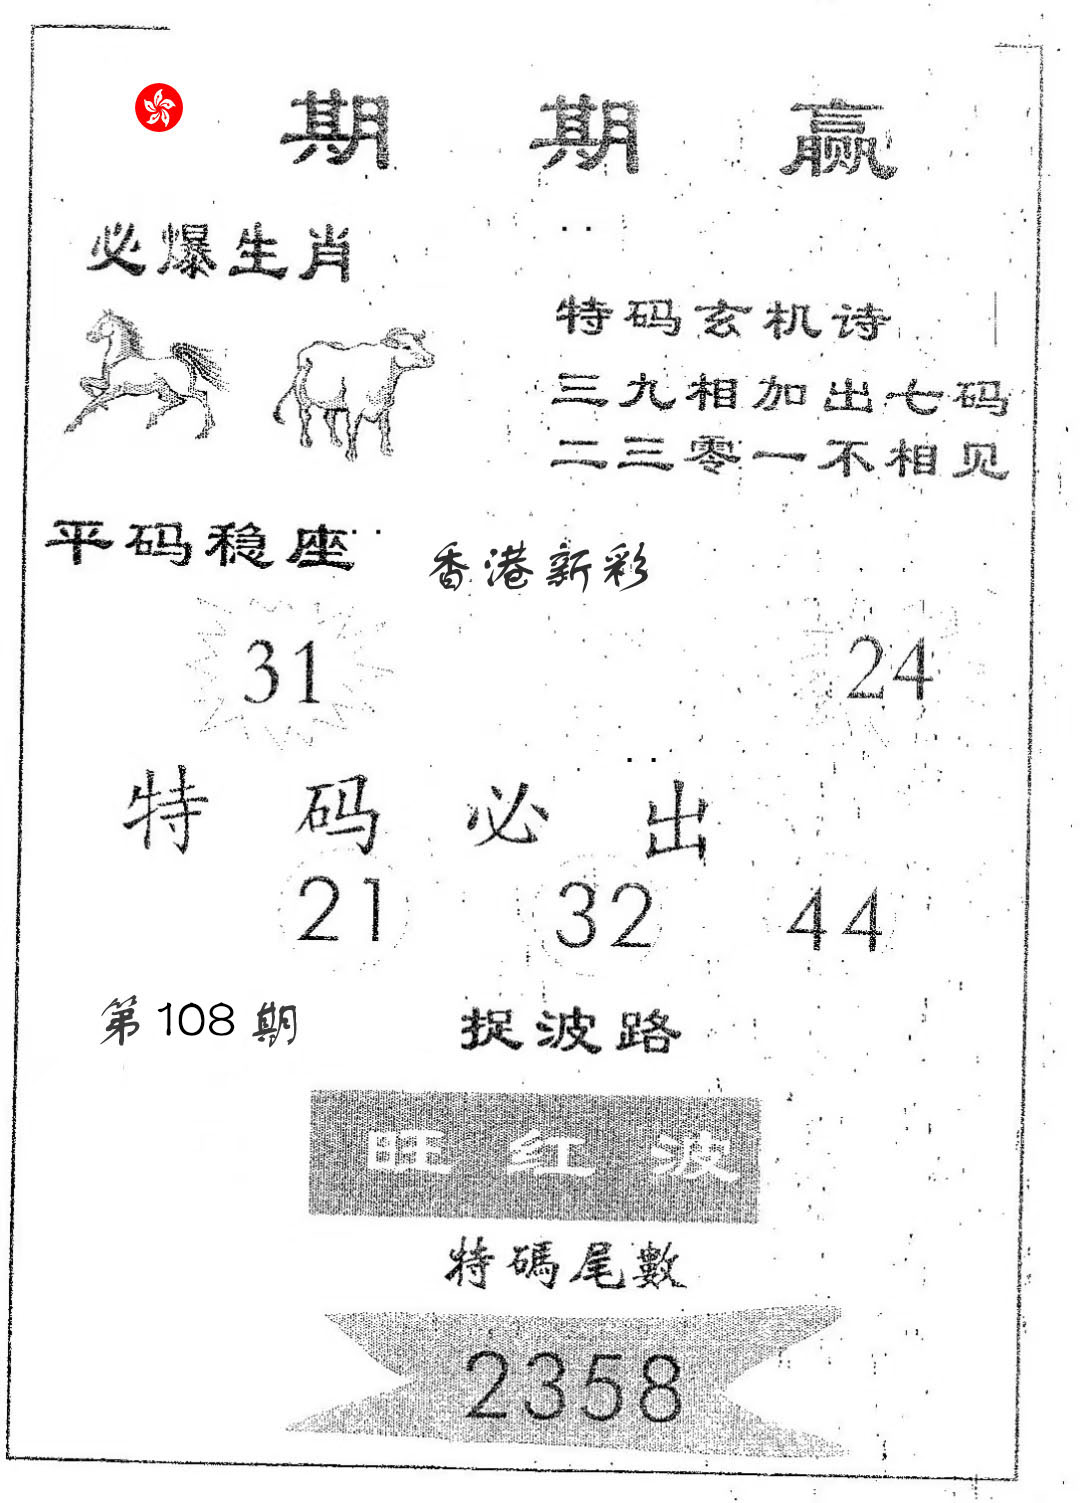 期期赢
必爆生肖
特码玄机诗
三九相加出七码
二三零一不相见
平码稳座
香港新彩
31 24
特码必出
21 32 44
第108期
捉波路
旺红波
特碼尾數
2358